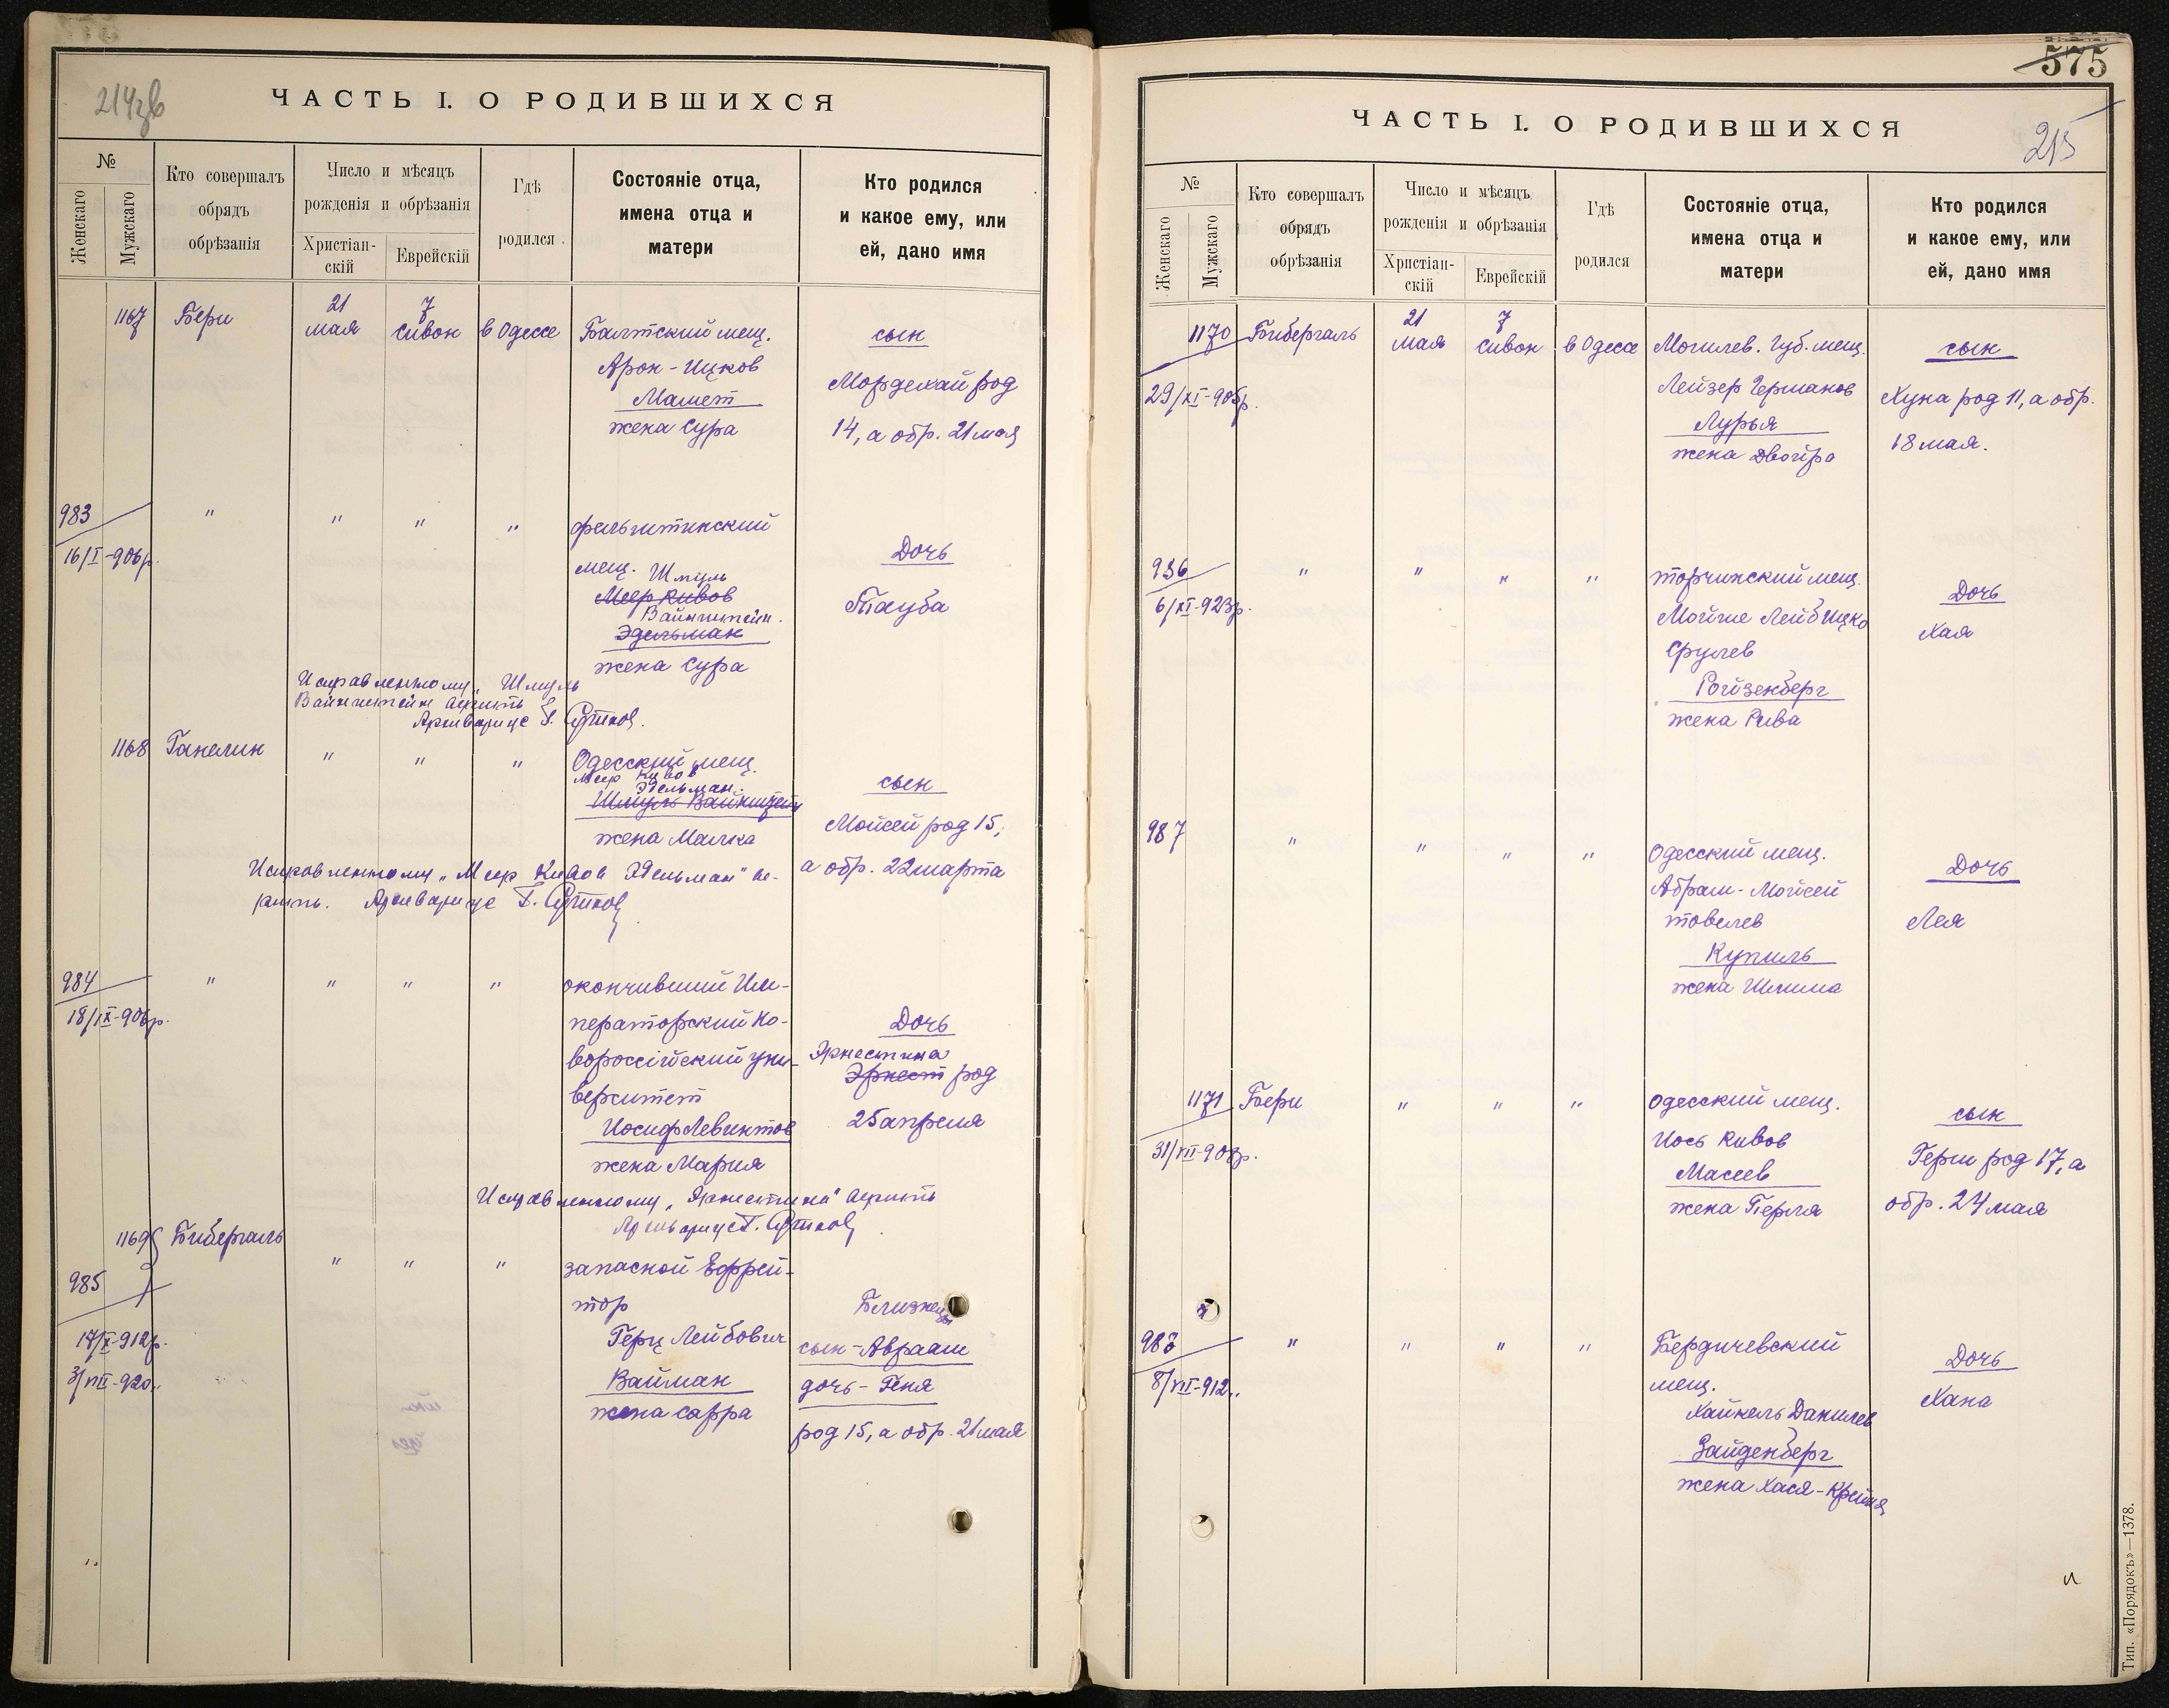 ЧАСТЬ I. О РОДИВШИХСЯ
№
Женскаго
Мужскаго
Кто совершалъ
обрядъ
обрѣзанія
Число и мѣсяцъ
рожденія и обрѣзанія
Христіан-
скій
Еврейскій
Гдѣ
родился
Состояніе отца,
имена отца и
матери
Кто родился
и какое ему, или
ей, дано имя
1167 Бери 21 мая 7 сивон в Одессе Балтский мещ.
Арон-Ицков
Мамет
жена Сура
сын
Мордехай род
14, а обр. 21 мая
983 " " " "
16/I-906р.
мещ. Шмуль
Меер Кивов
Вайнштейн
Эдельман
жена Сура
Дочь
Тауба
Исправленному „Шмуль
Вайнштейн верить
Архивариус
1168 Ганелин " " " Одесский мещ.
Меер Кивов
Эдельман
Шмуль Вайнштейн
жена Малка
сын
Мойсей род 15,
а обр. 22 марта
Исправленному „Меер Кивов Эдельман" ве-
рить. Архивариус
984 " " " " окончивший Им-
18/IX-906р.
ператорский Но-
вороссiйский уни-
верситет
Иосиф Левинтов
жена Мария
Дочь
Эрнестина
Эрнест род
25 апреля
Исправленному „Эрнестина" верить
Архивариус
1169 Бибергаль
985 " " " запасной Ефрей-
тор
17/X-912р.
3/VIII-920
Герц Лейбович
Вайман
жена Сарра
Близнецы
сын-Авраам
дочь-Геня
род 15, а обр. 21 мая
575
215
ЧАСТЬ I. О РОДИВШИХСЯ
№
Женскаго
Мужскаго
Кто совершалъ
обрядъ
обрѣзанія
Число и мѣсяцъ
рожденія и обрѣзанія
Христіан-
скій
Еврейскій
Гдѣ
родился
Состояніе отца,
имена отца и
матери
Кто родился
и какое ему, или
ей, дано имя
1170 Бибергаль 21 мая 7 сивон в Одессе Могилев. Губ. мещ.
29/XI-905р.
Лейзер Германов
Лурья
жена Двойра
сын
Хуна род 11, а обр.
18 мая.
986 " " " " торчинский мещ.
6/XI-923р.
Мойше Лейб Ицко
Срулев
Ройзенберг
жена Рива
Дочь
Хая
987 " " " " Одесский мещ.
Абрам-Мойсей
товелев
Купиль
жена Шлима
Дочь
Лея
1171 Бери " " " Одесский мещ.
31/VII-908р.
Иось Кивов
Масеев
жена Перля
сын
Герш род 17, а
обр. 24 мая
988 " " " " Бердичевский
8/VII-912
мещ.
Хайкель Данилев
Зайденберг
жена Хася-Крейня
Дочь
Хана
Тип. «Порядокъ»—1378.